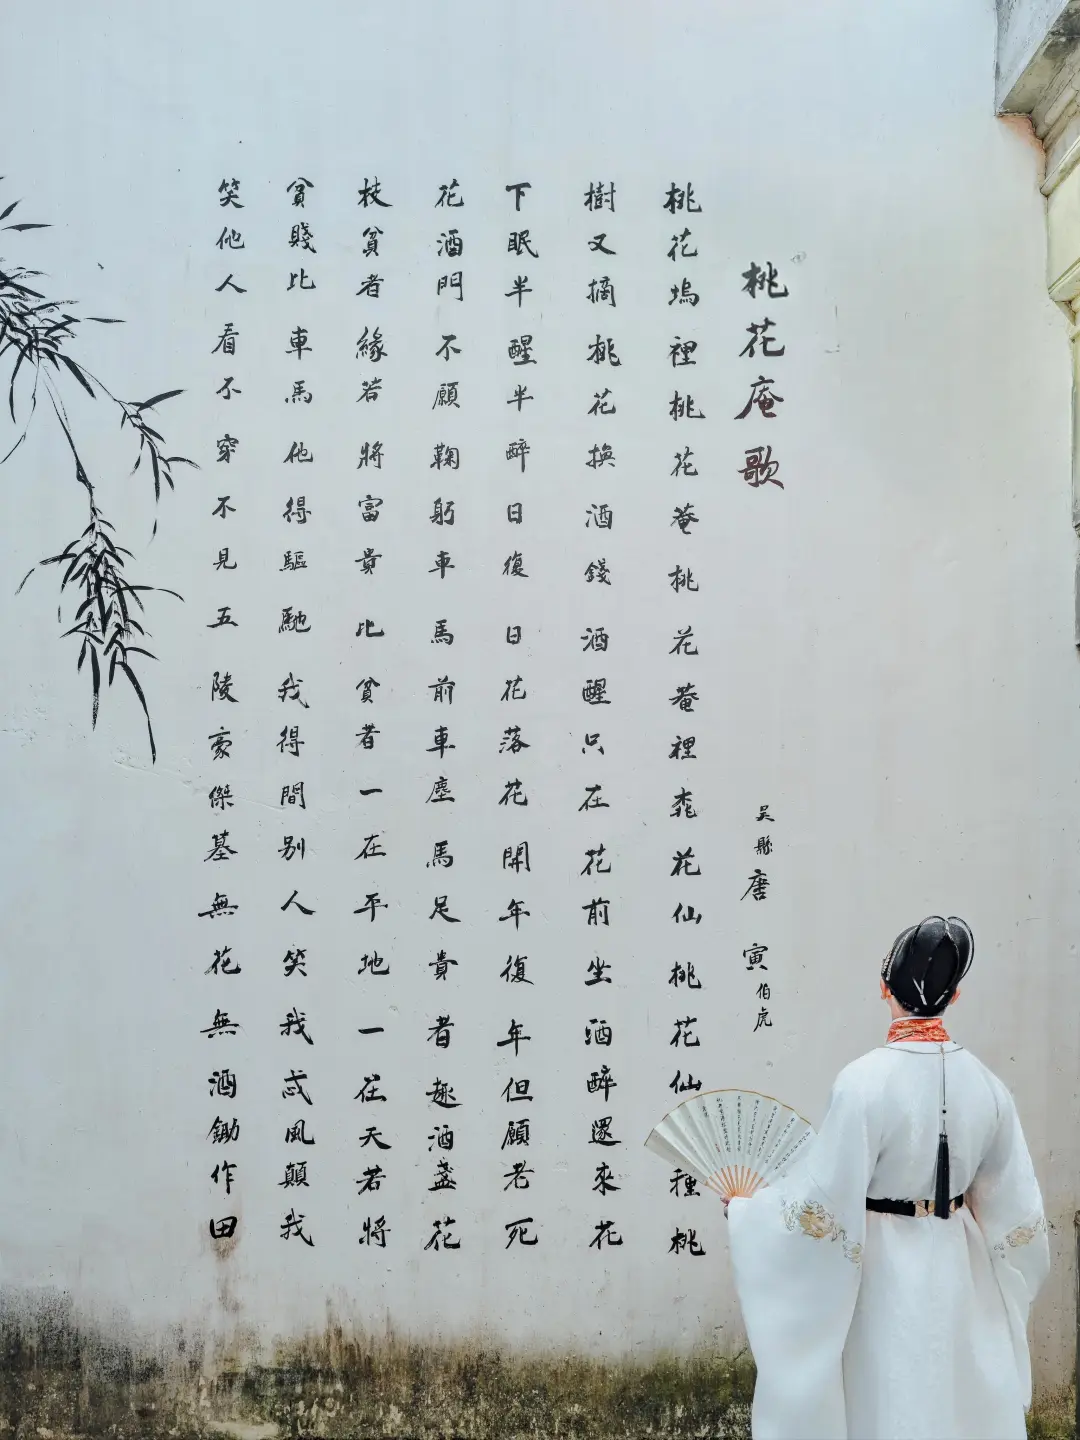 桃花庵歌
吳縣唐寅伯虎
桃花塢裡桃花菴桃花菴裡桃花仙桃花仙種桃
樹又摘桃花換酒錢酒醒只在花前坐酒醉還來花
下眠半醒半醉日復日花落花開年復年但願老死
花酒門不願鞠躬車馬前車塵馬足貴者趣酒盞花
枝貧者緣若將富貴比貧者一在平地一在天若將
貧賤比車馬他得驅馳我得間別人笑我忒風顛我
笑他人看不穿不見五陵豪傑墓無花無酒鋤作田